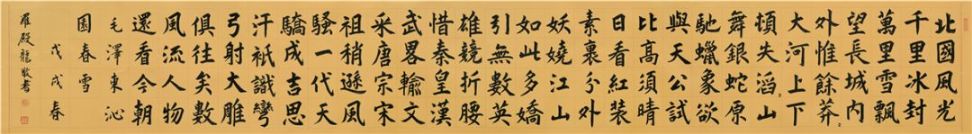 北國風光
千里冰封
萬里雪飄
望長城內
外惟餘莽
大河上下
頓失滔山
舞銀蛇原
馳蠟象欲
與天公試
比高須晴
日看紅裝
素裹分外
妖嬈江山
如此多嬌
引無數英
雄競折腰
惜秦皇漢
武畧輸文
采唐宗宋
祖稍遜風
騷一代天
驕成吉思
汗祇識彎
弓射大雕
俱往矣數
風流人物
還看今朝
毛澤東沁
園春雪
戊戌春
羅殿龍敬書